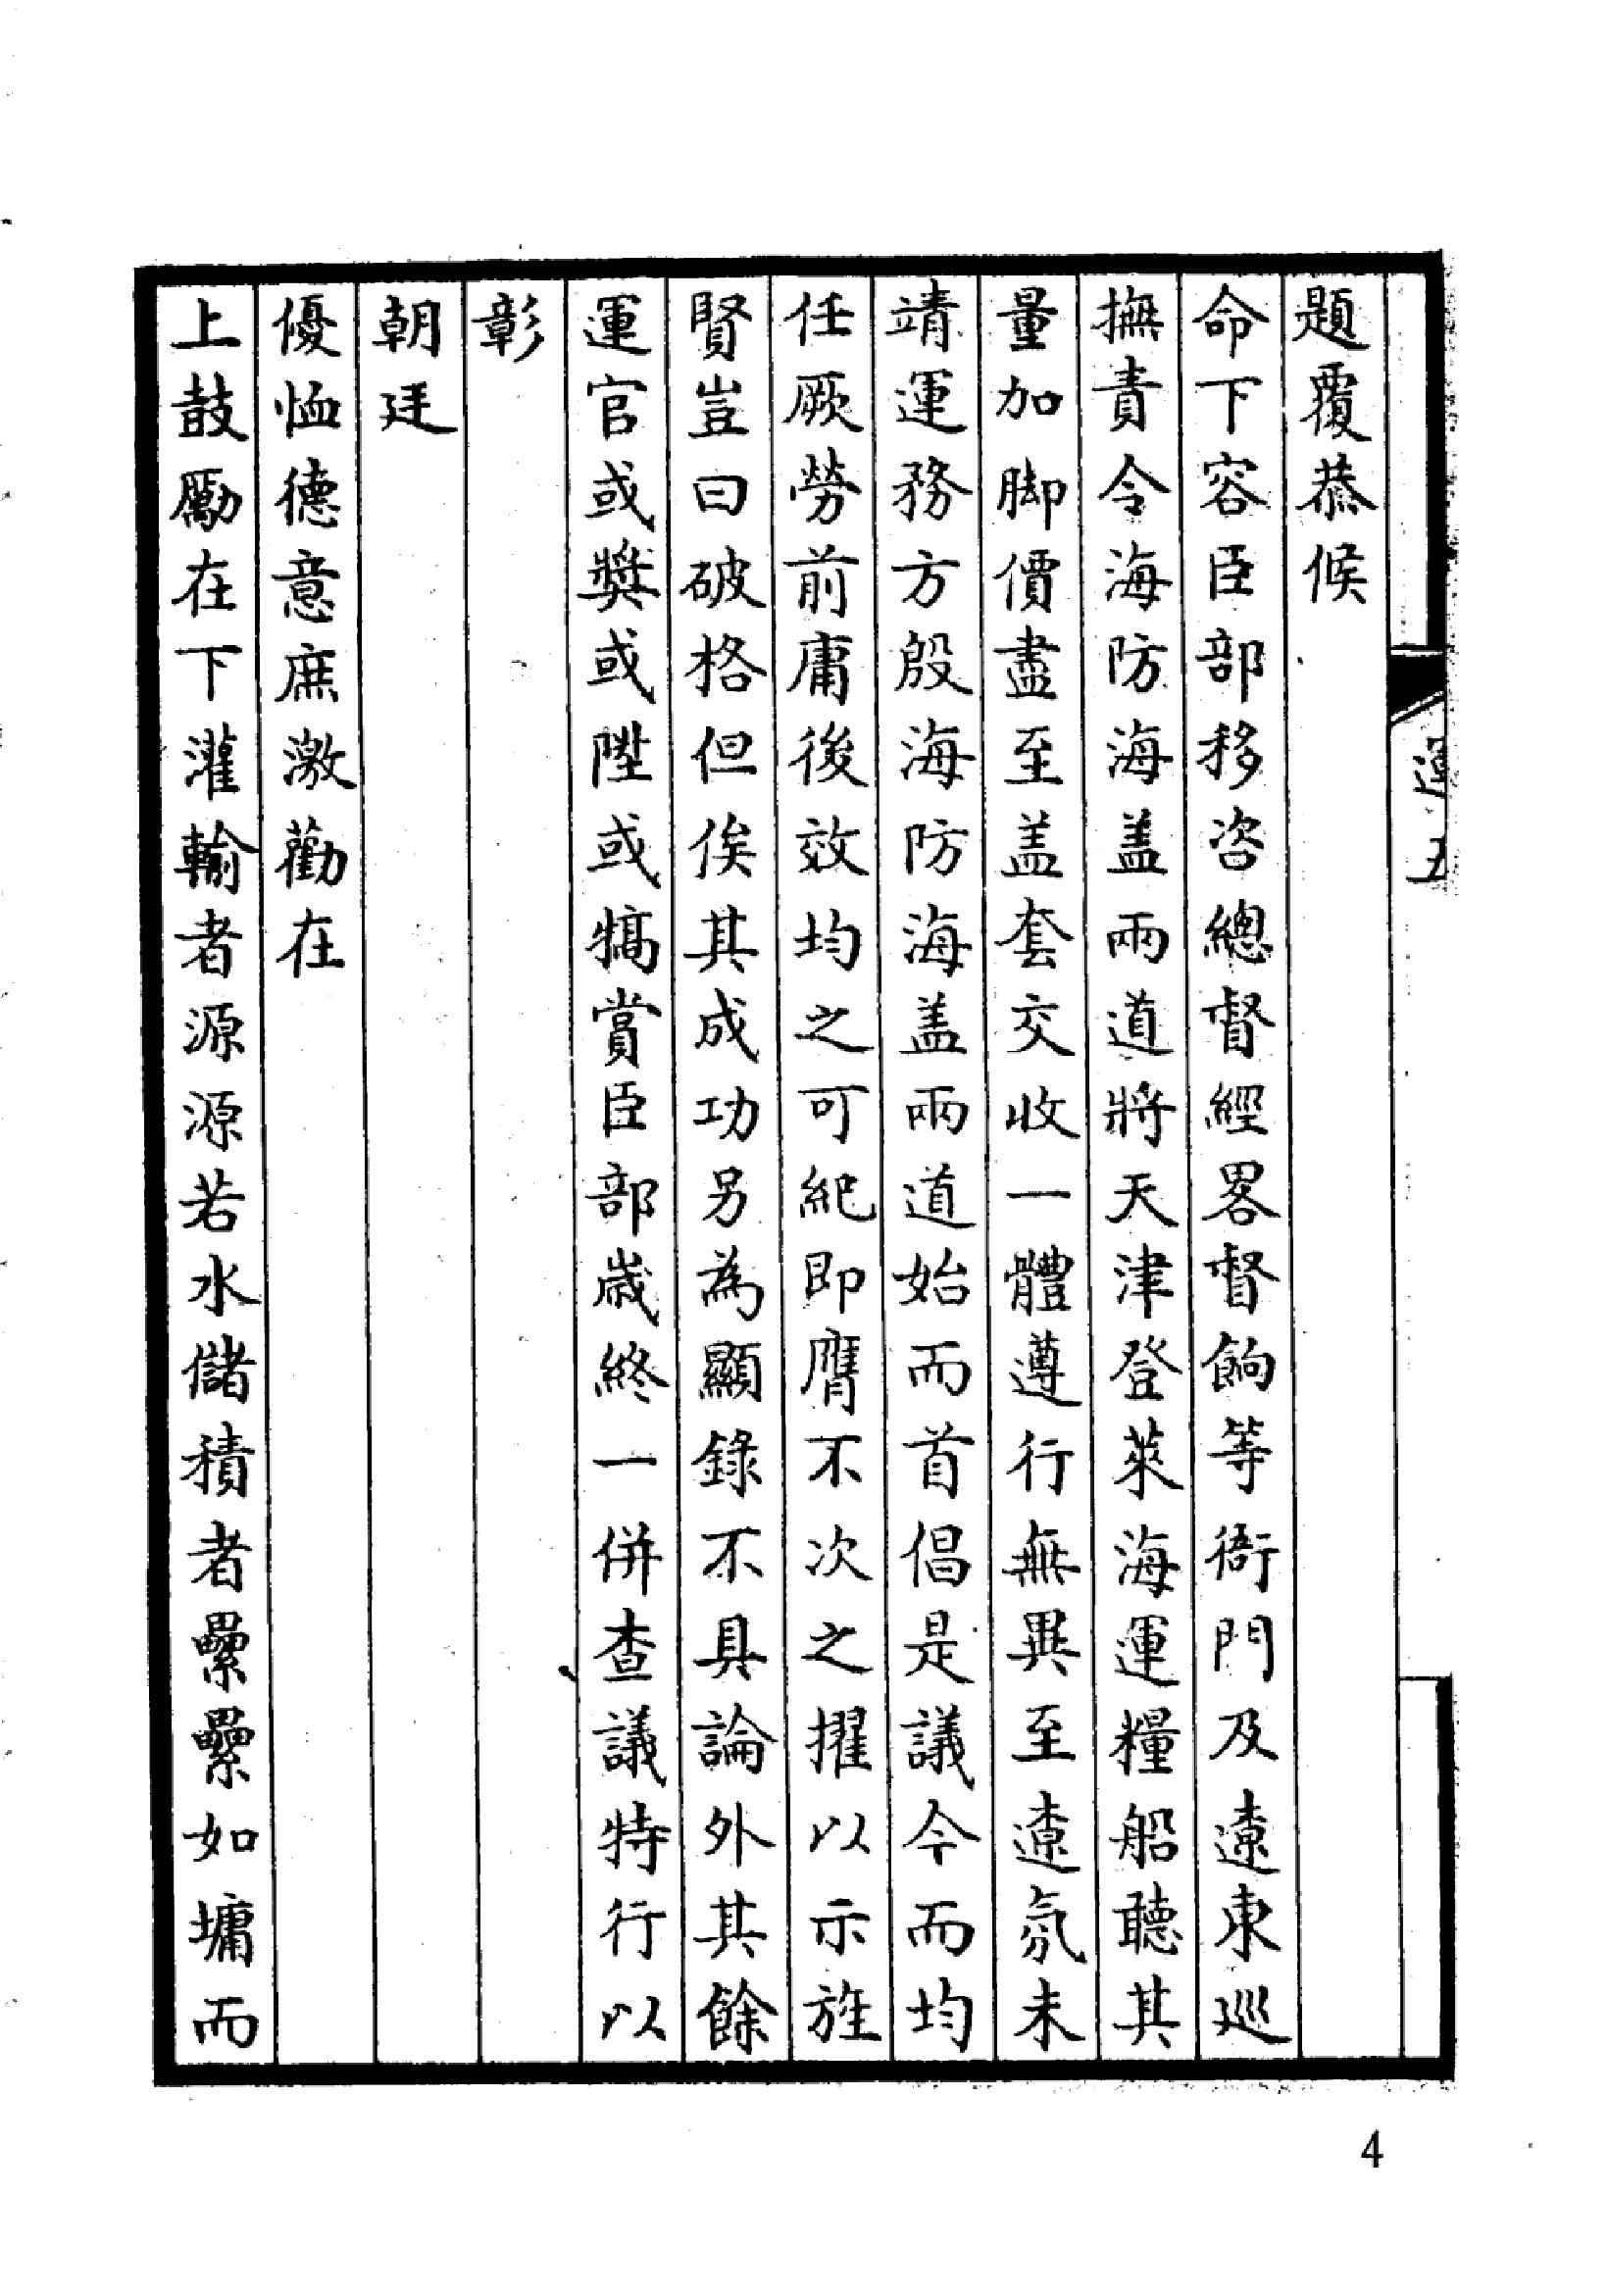 題覆恭候
命下容臣部移咨總督經畧督餉等衙門及遼東巡
撫責令海防海盖兩道將天津登萊海運糧船聽其
量加脚價盡至盖套交收一體遵行無異至遼氛未
靖運務方殷海防海盖兩道始而首倡是議今而均
任厥勞前庸後效均之可紀即膺不次之擢以示旌
賢豈曰破格但俟其成功另為顯錄不具論外其餘
運官或奬或陞或犒賞臣部歲終一併查議特行以
彰
朝廷
優恤德意庶激勸在
上鼓勵在下灌輸者源源若水儲積者纍纍如墉而
運五
4